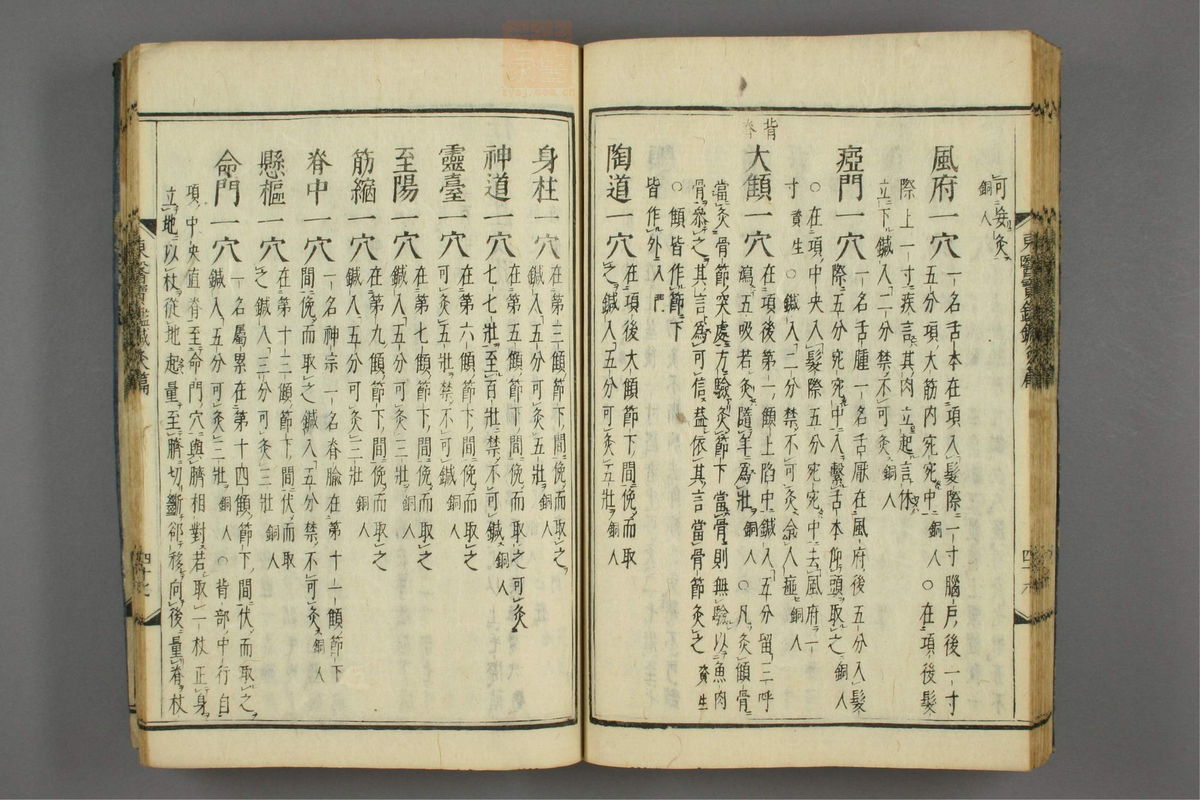 可妄灸
銅人
風府一穴 一名舌本在項入髮際一寸腦戶後一寸
五分項大筋內宛宛中 銅人 ○在項後髮
際上一寸疾言其肉立起言休
立下鍼入二分禁不可灸 銅人
瘂門一穴 一名舌腫一名舌厭在風府後五分入髮
際五分宛宛中入繫舌本仰頭取之 銅人
○在項中央入髮際五分宛宛中去風府一
寸 資生 ○鍼入二分禁不可灸令人瘂 銅人
背脊
大顀一穴 在項後第一顀上陷中鍼入五分留三呼
瀉五吸若灸隨年爲壯 銅人 ○凡灸顀骨
當灸骨節突處方驗灸節下當骨則無驗以魚肉
骨參之其言爲可信益依其言當骨節灸之 資生
○顀皆作節下
皆作外 入門
陶道一穴 在項後大顀節下間俛而取
之鍼入五分可灸五壯 銅人
身柱一穴 在第三顀節下間俛而取之
鍼入五分可灸五壯 銅人
神道一穴 在第五顀節下間俛而取之可灸
七七壯至百壯禁不可鍼 銅人
靈臺一穴 在第六顀節下間俛而取之
可灸五壯禁不可鍼 銅人
至陽一穴 在第七顀節下間俛而取之
鍼入五分可灸三壯 銅人
筋縮一穴 在第九顀節下間俛而取之
鍼入五分可灸三壯 銅人
脊中一穴 一名神宗一名脊腧在第十一顀節下
間俛而取之鍼入五分禁不可灸 銅人
懸樞一穴 在第十三顀節下間伏而取
之鍼入三分可灸三壯 銅人
命門一穴 一名屬累在第十四顀節下間伏而取之
鍼入五分可灸三壯 銅人 ○背部中行自
項中央值脊至命門穴與臍相對若取一杖正身
立地以杖從地起量至臍切斷卻移向後量脊杖
東醫寶鑑鍼灸篇
四十七